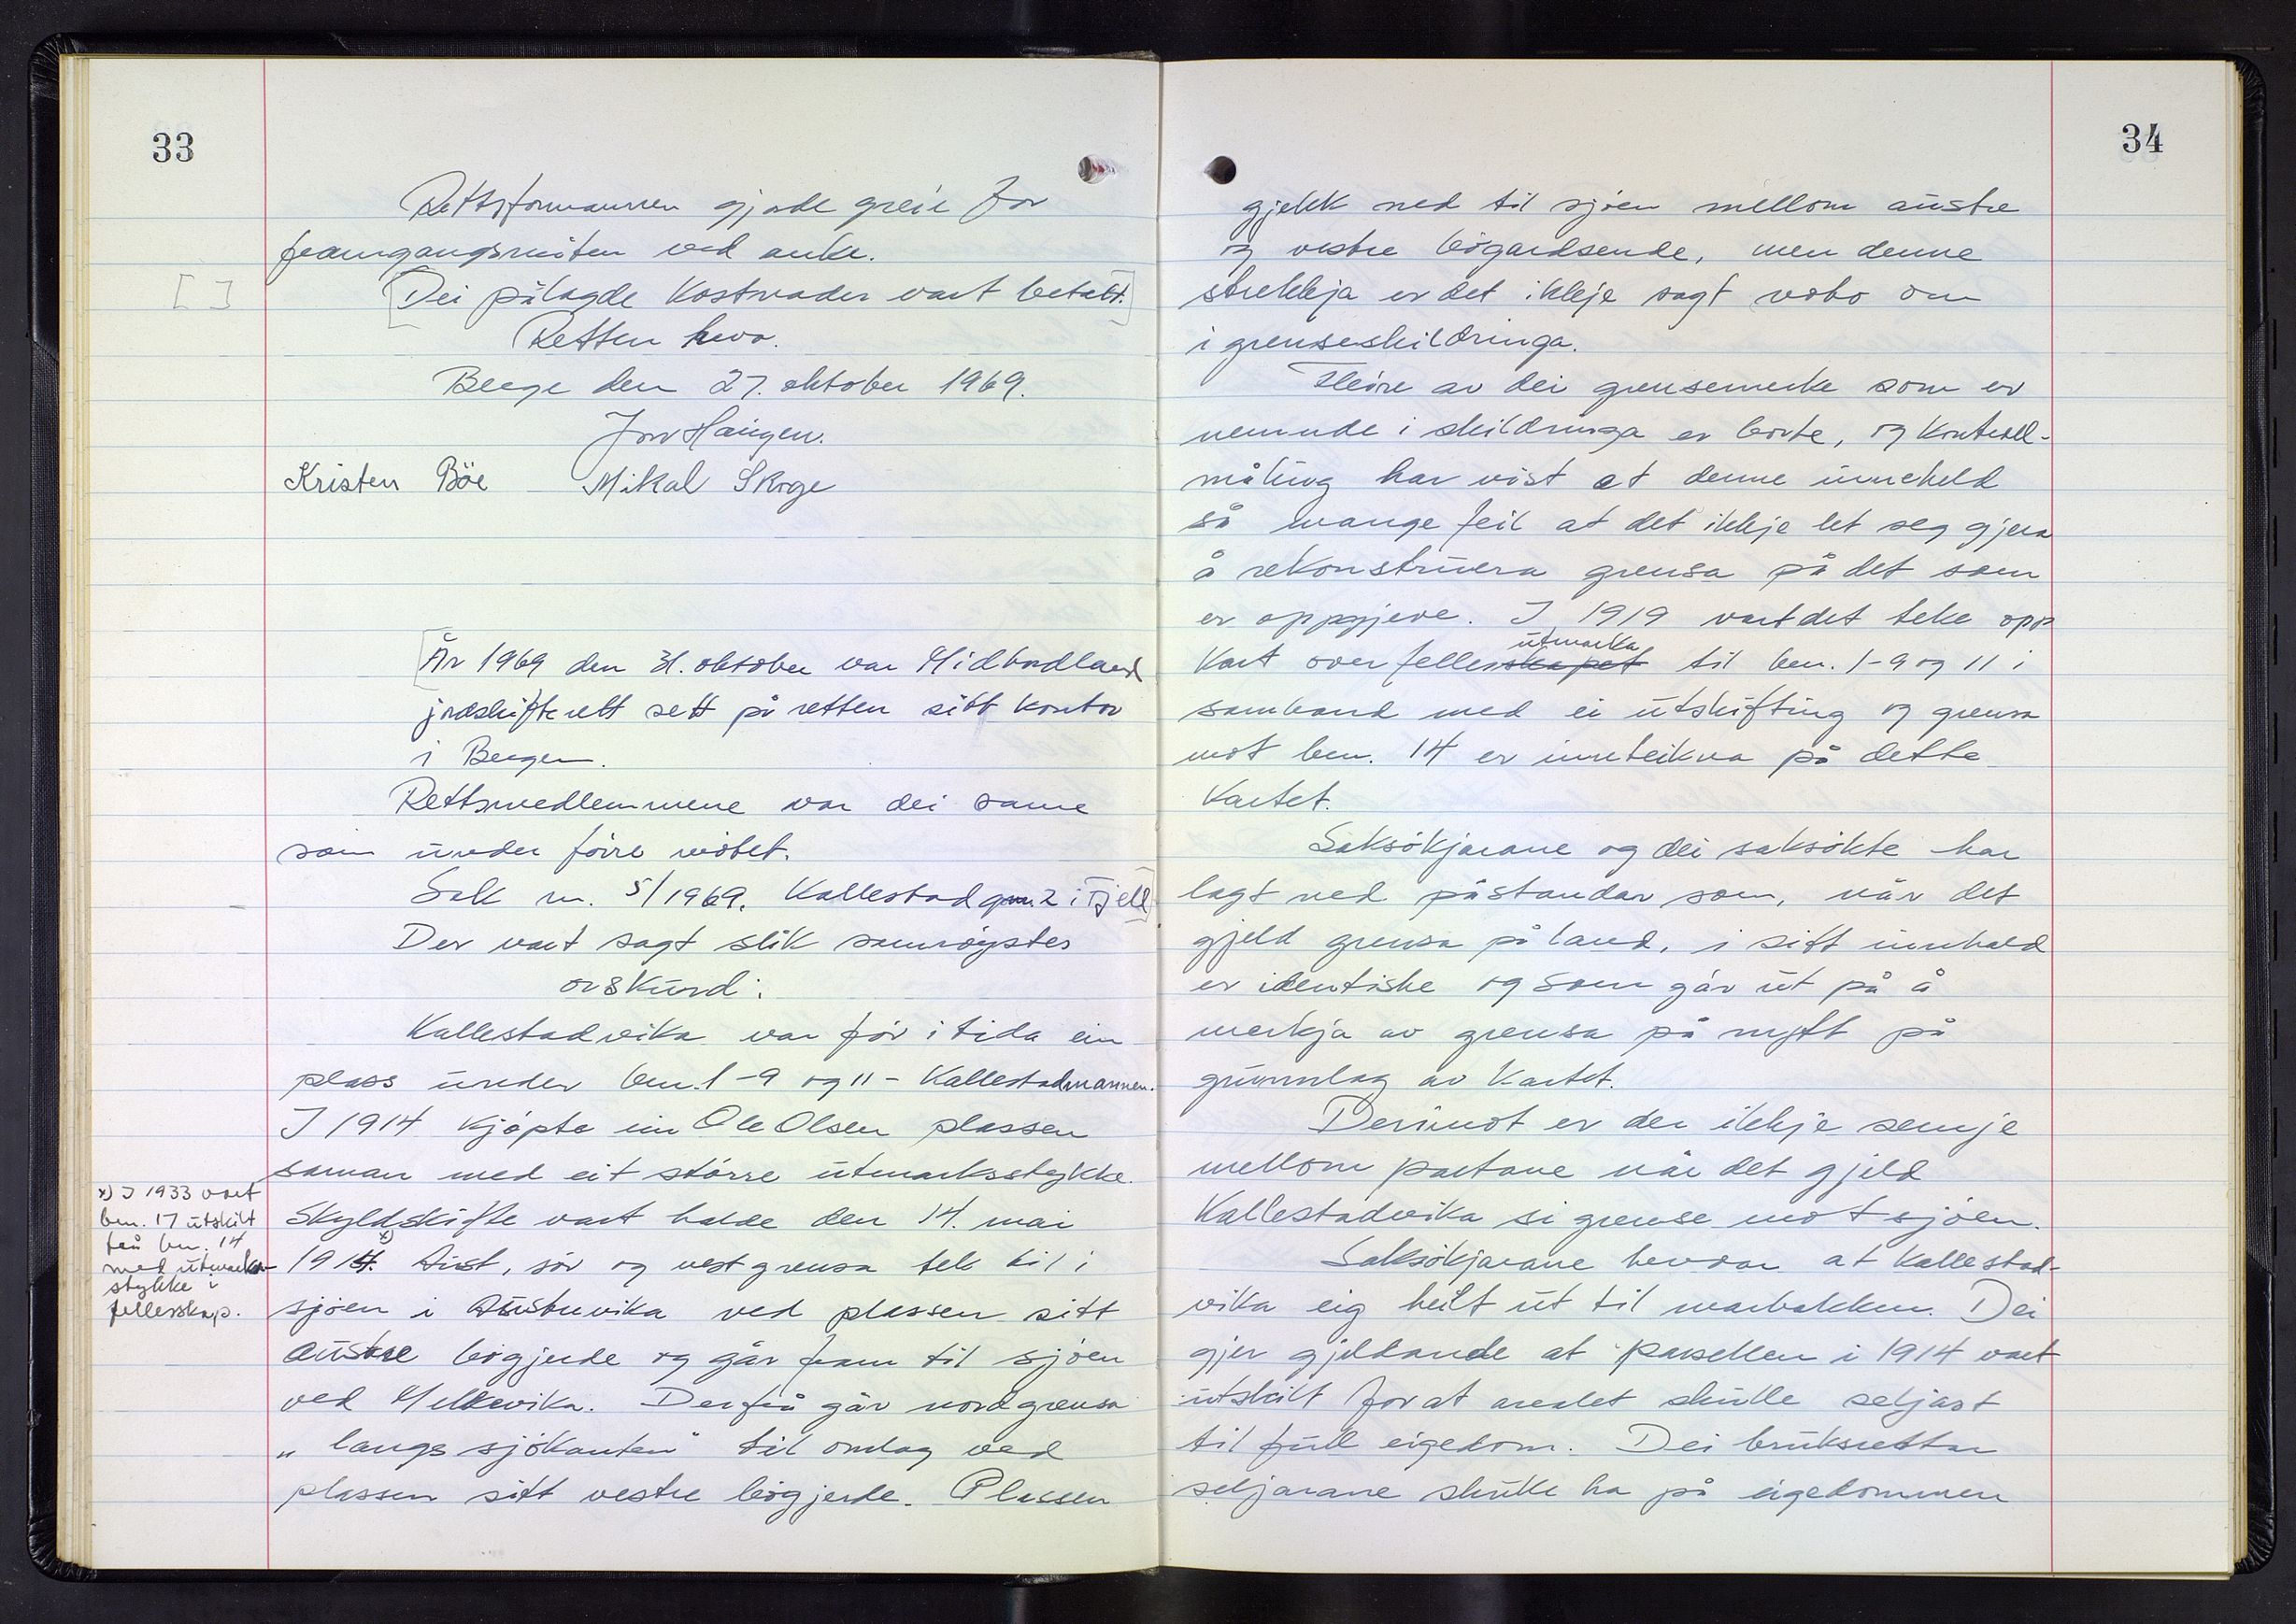 33
Rettsformannen gjorde greie for
framgangsmåten ved anke.
[ ]
[Dei pålagde kostnader vart betalt.]
Retten heva.
Berge den 27. oktober 1969.
Jon Haugen.
Kristen Böe Mikal Skoge
[År 1969 den 31. oktober var Midhordland
jordskifterett sett på retten sitt kontor
i Bergen.
Rettsmedlemmene var dei same
som under förre mötet.
Sak nr. 5/1969. Kallestad gnr. 2 i Fjell]
Der vart sagt slik samröystes
orskurd:
Kallestadvika var för i tida ein
plass under bnr. 1-9 og 11 - Kallestadmannen.
I 1914 kjöpte ein Ole Olsen plassen
saman med eit större utmarksstykke.
Skyldskifte vart halde den 14. mai
1914. x) Aust, sör og vestgrensa tek til i
sjöen i Austrevika ved plassen sitt
austre bögjerde og går fram til sjöen
ved Melkevika. Derfrå går nordgrensa
„langs sjökanten" til omlag ved
plassen sitt vestre bögjerde. Plassen
x) I 1933 vart
bnr. 17 utskilt
frå bnr. 14
med utmarks-
stykke i
fellesskap.
34
gjekk ned til sjöen mellom austre
og vestre bögardsende, men denne
strekkja er det ikkje sagt noko om
i grenseskildringa.
Fleire av dei grensemerke som er
nemnde i skildringa er borte, og kontroll-
måling har vist at denne inneheld
så mange feil at det ikkje let seg gjera
å rekonstruera grensa på det som
er oppgjeve. I 1919 vart det teke opp
utmarka
kart over fellesskapet til bnr. 1-9 og 11 i
samband med ei utskifting og grensa
mot bnr. 14 er innteikna på dette
kartet.
Saksökjarane og dei saksökte har
lagt ned påstandar som, når det
gjeld grensa på land, i sitt innhald
er identiske og som går ut på å
merkja av grensa på nytt på
grunnlag av kartet.
Derimot er der ikkje semje
mellom partane når det gjeld
Kallestadvika si grense mot sjöen.
Saksökjarane hevdar at Kallestad-
vika eig heilt ut til marbakken. Dei
gjer gjeldande at parsellen i 1914 vart
utskilt for at arealet skulle seljast
til full eigedom. Dei bruksrettar
seljarane skulle ha på eigedommen